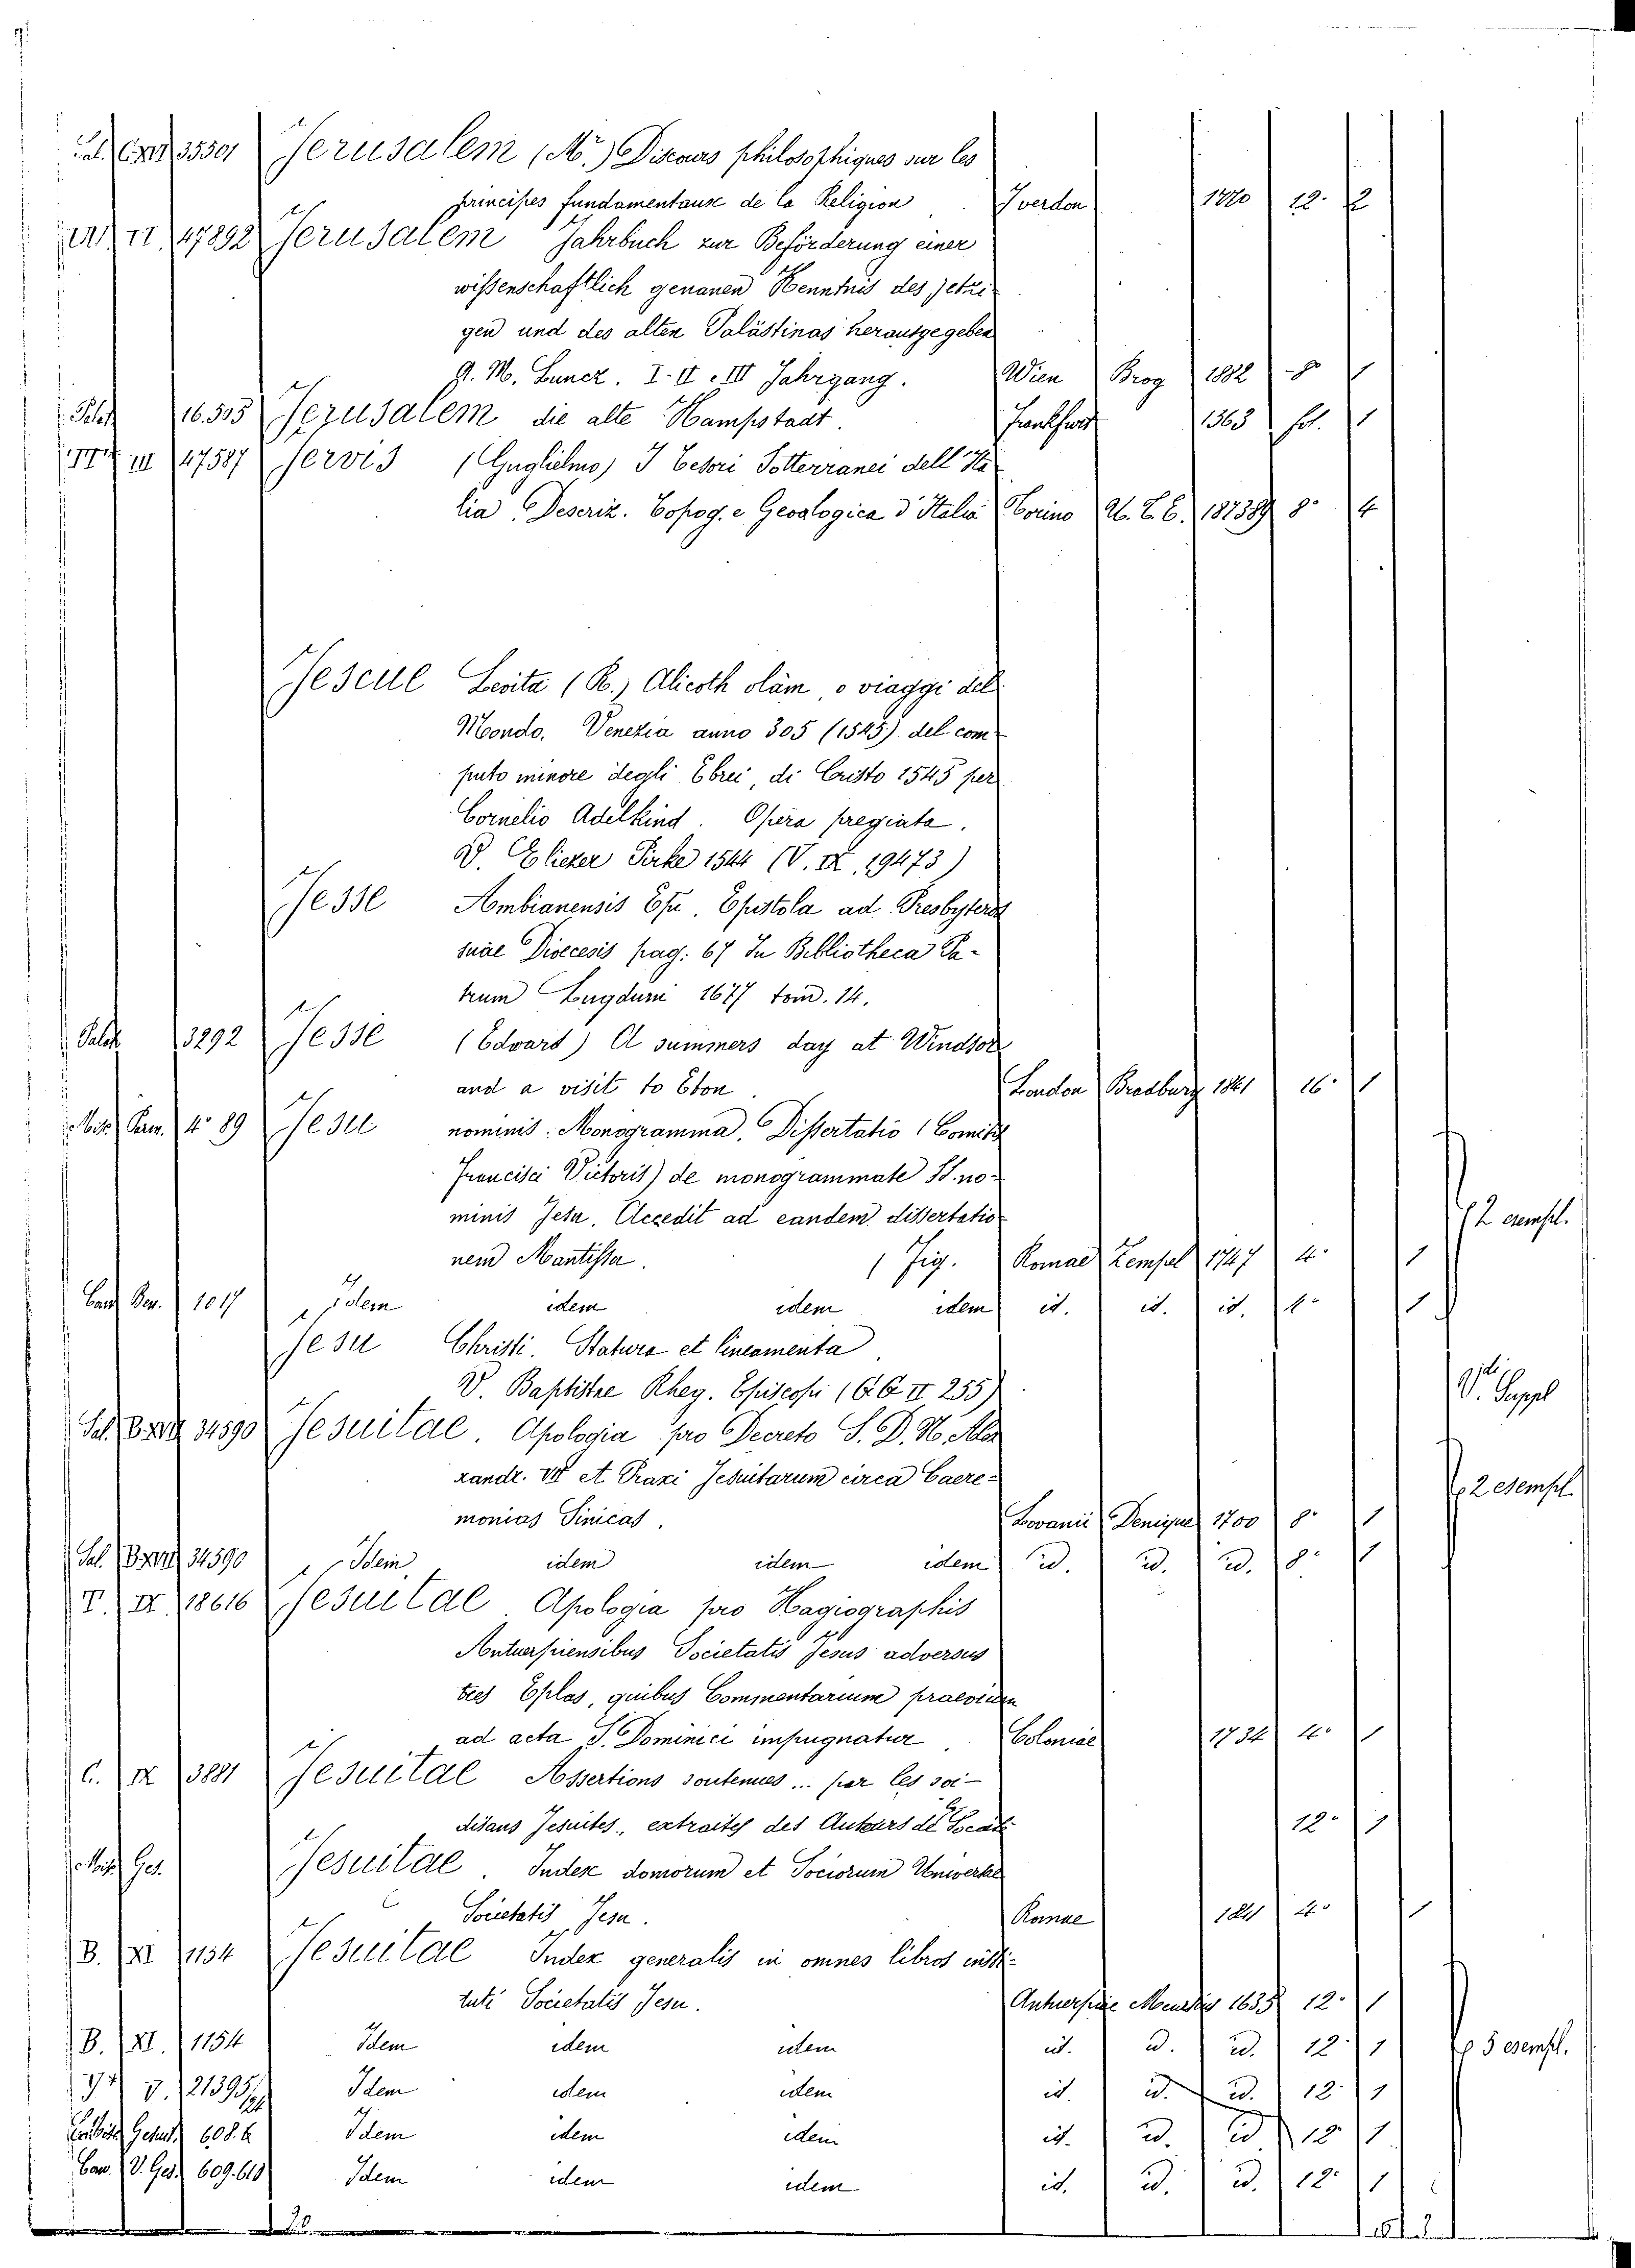 Jerusalem (Mr.) Discours philosophiques sur les
principes fundamentaux de la Religion Iverdon 12. 2
II 47892 Jerusalem Jahrbuch zur Beförderung einer
wißenschaftlich genanen Kenntnis des jetzi
gen und des alten Palästinas herausgegeben
A. M. Luncz. I. II e III Jahrgang. Wien Brog 1882 8º 1
16.505 Jerusalem die alte Hampstadt. Frankfurt 1563 fol. 1
III 47587 Jervis (Guglielmo) I Tesori Sotterranei dell'Ita
lia, Descriz. Topog. e Geoalogica d'Italia Torino 8º 4
Jescue Levita (R.) Alicoth olàm, o viaggi del
Mondo. Venezia anno 305 (1545) del com
puto minore degli Ebrei, di Cristo 1545 per
Cornelio Adelkind. Opera pregiata.
V. Eliezer Pirke 1544 (V. IX. 19473)
Jesse Ambianensis Epu. Epistola ad Presbyteros
suae Dioecesis pag. 67 In Bibliotheca Pa-
trum Lugduni 1677 tom. 14.
Palat 3292 Jesse (Edward) A summers day at Windsor
and a visit to Eton London Bradbury 1841 16. 1
4º 89 Jesu nominis. Monogramma, Dissertatio (Comitis
Francisci Victoris) de monogrammate SS. no-
minis Jesu. Accedit ad eandem dissertatio 2 esempl.
nem Mantissa. 1 Fig. Romae Zempel 1747 4º 1
1017 Idem idem idem idem id. id. id. 4º 1
Jesu Christi. Statura et lineamenta
V. Baptistae Rheg. Episcopi (66 II 255) V. Suppl
34590 Jesuitae. Apologia pro Decreto S. D. N. Alex
xandr. VII et Praxi Jesuitarum circa Caere-
monias Sinicas. Lovanii Denique 1700 8º 1 2 esempl.
34590 Idem idem idem idem id. id. id. 8º 1
T. IX 18616 Jesuitae. Apologia pro Hagiographis
Antuerpiensibus Societatis Jesus adversus
tres Eplas, quibus Commentarium praevium
ad acta S. Dominici impugnatur Coloniae 1734 4º 1
C. IX 3881 Jesuitae Assertions soutenues... par les soi-
disans Jesuites, extraites des Auteurs de 12º 1
Jesuitae. Index domorum et Sociorum Universae
Societatis Jesu. Romae 4º 1
B. XI 1154 Jesuitae Index generalis in omnes libros insti-
tuti Societatis Jesu. Antuerpiae 1635 12. 1
B. XI. 1154 Idem idem idem id. id. id. 12. 1 5 esempl.
V. 21395 Idem idem idem id. id. id. 12. 1
608.6 Idem idem idem id. id. id. 12. 1
V. Ges. 609.610 Idem idem idem id. id. id. 12. 1